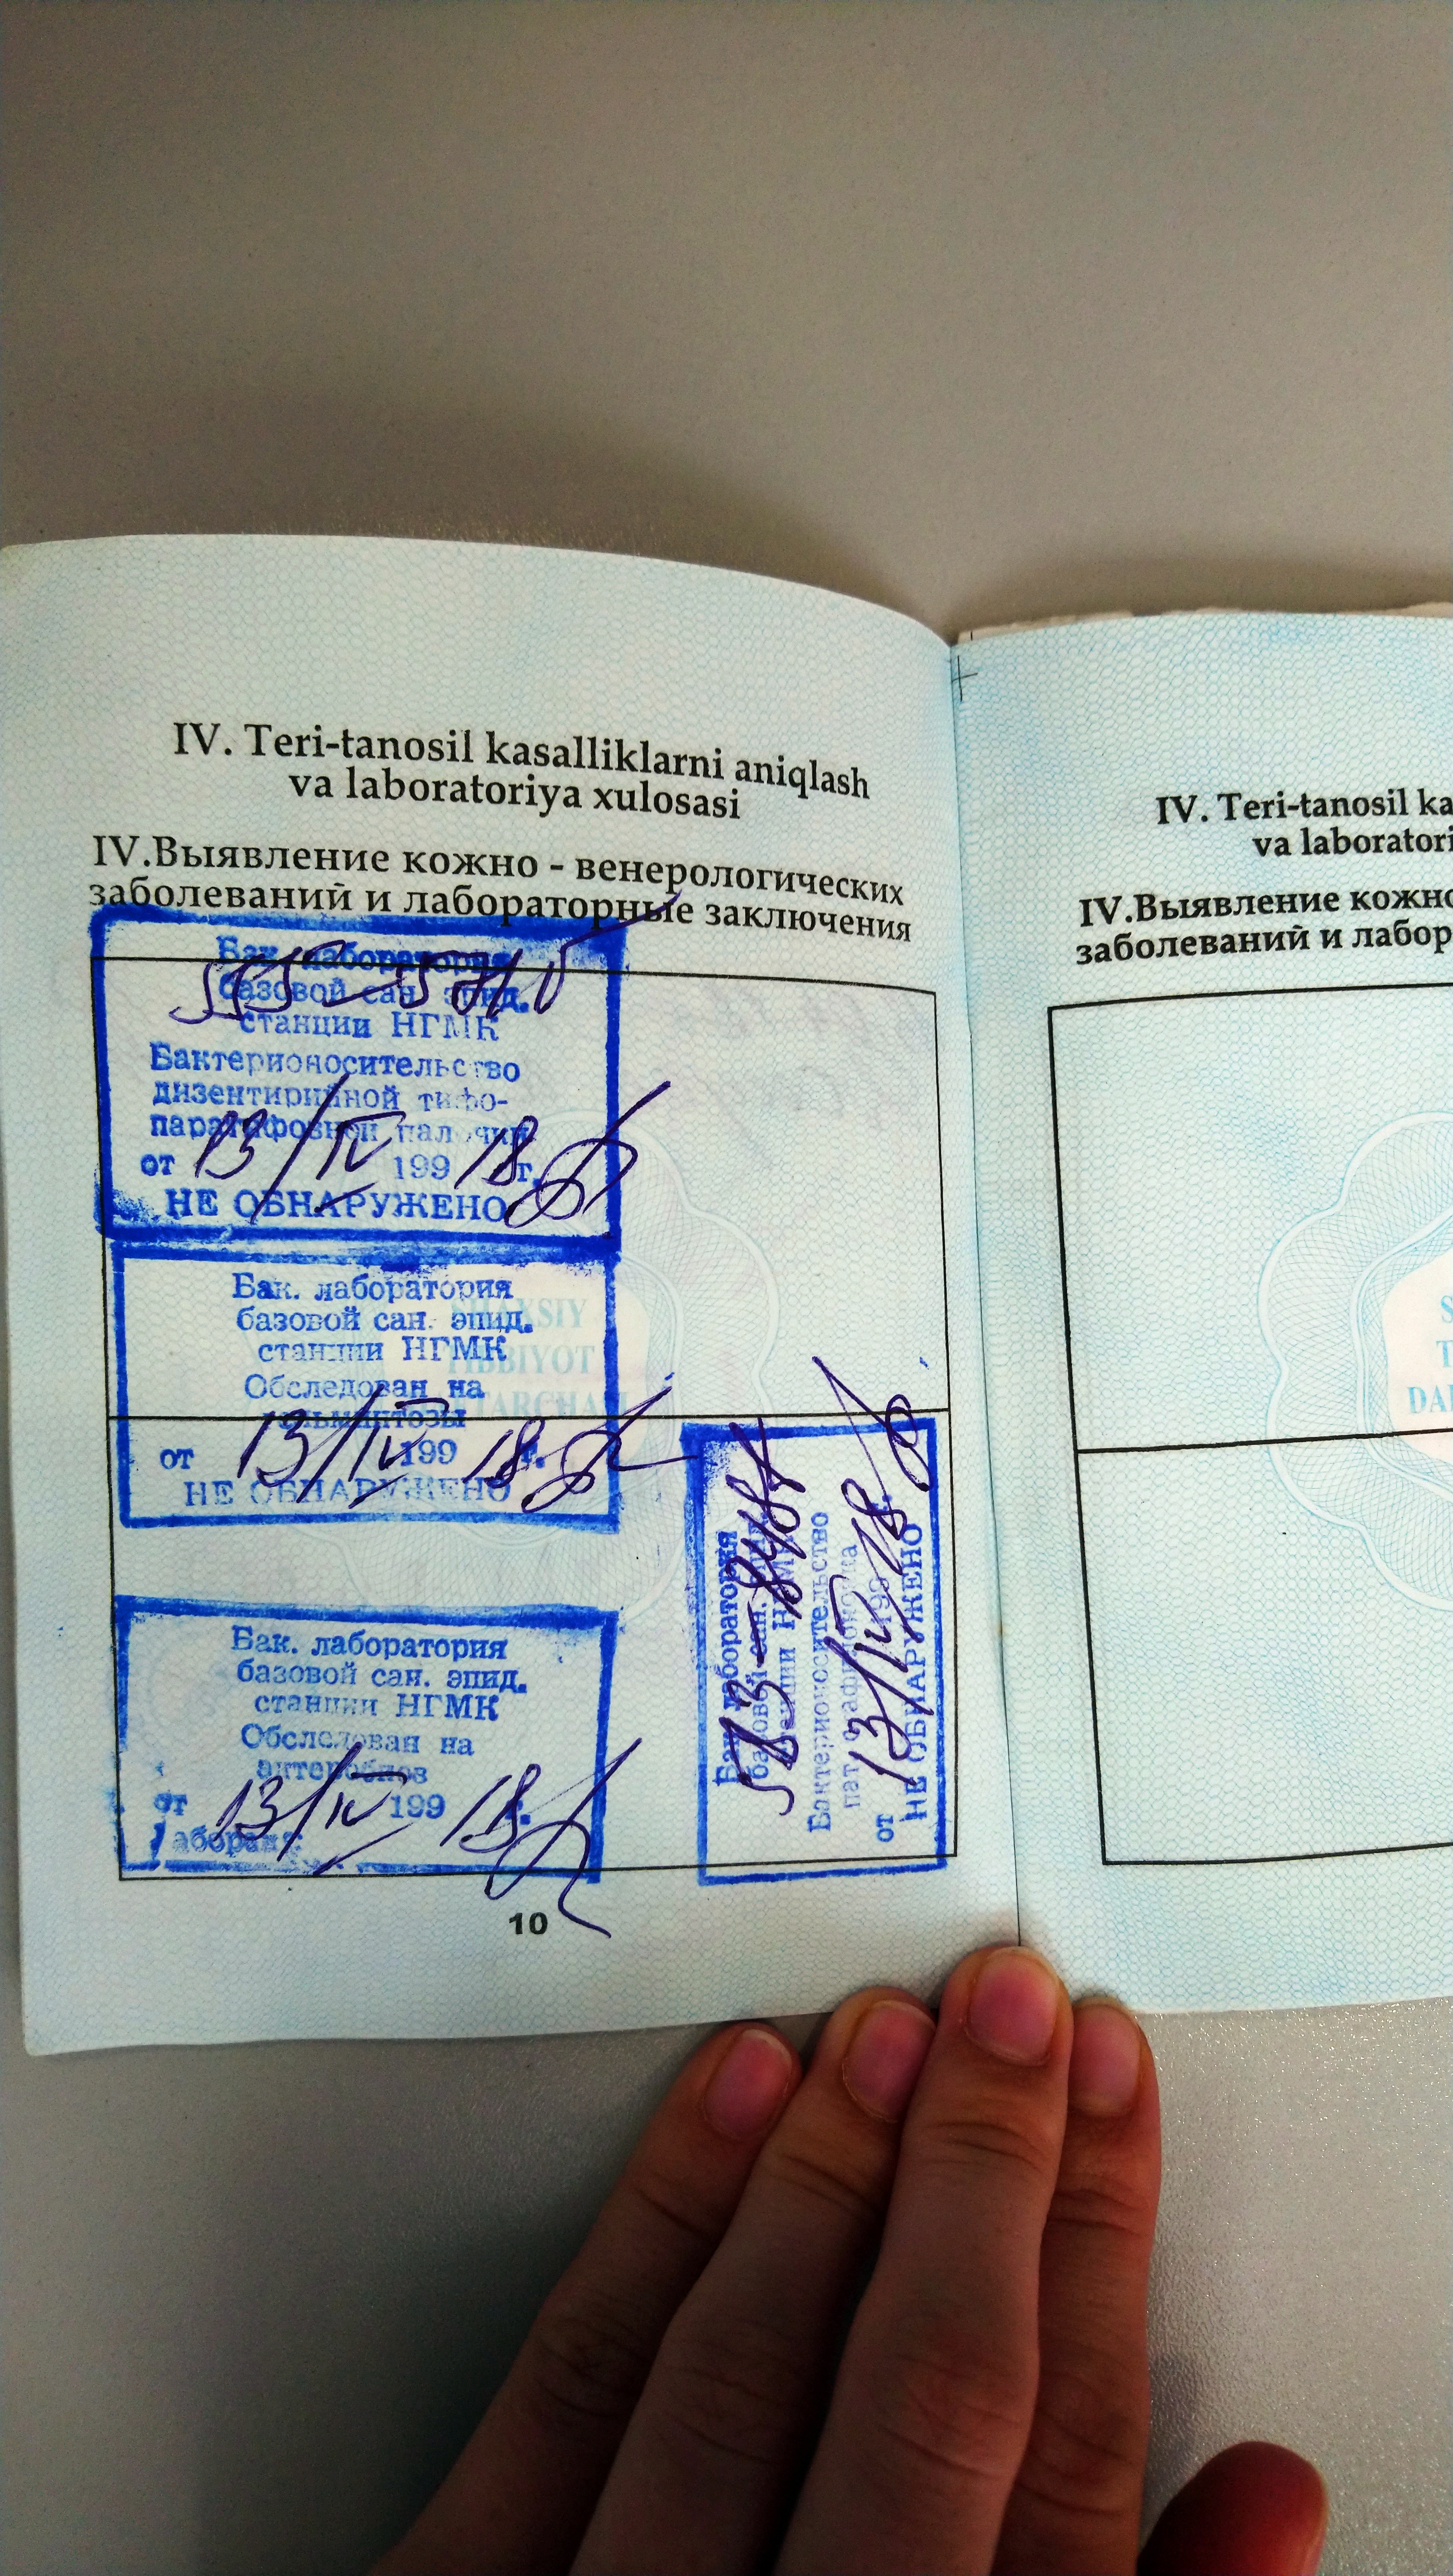 IV. Teri-tanosil kasalliklarni aniqlash
va laboratoriya xulosasi
IV.Выявление кожно - венерологических
заболеваний и лабораторные заключения
Бак. лаборатория
базовой сан. эпид.
станции НГМК
Бактерионосительство
дизентирийной тифо-
паратифозной палочки
от 13/IV 199 18 г.
НЕ ОБНАРУЖЕНО
Бак. лаборатория
базовой сан. эпид.
станции НГМК
Обследован на
от 13/IV 199 18 г.
НЕ ОБНАРУЖЕНО
SHAKSIY
TIBBIYOT
Бак. лаборатория
базовой сан. эпид.
станции НГМК
Обследован на
от 13/IV 199 18 г.
Бак. лаборатория
базовой сан. эпид.
станции НГМК
Бактерионосительство
от 13/IV 199 18
НЕ ОБНАРУЖЕНО
10
IV. Teri-tanosil ka
va laboratori
IV.Выявление кожно
заболеваний и лабор